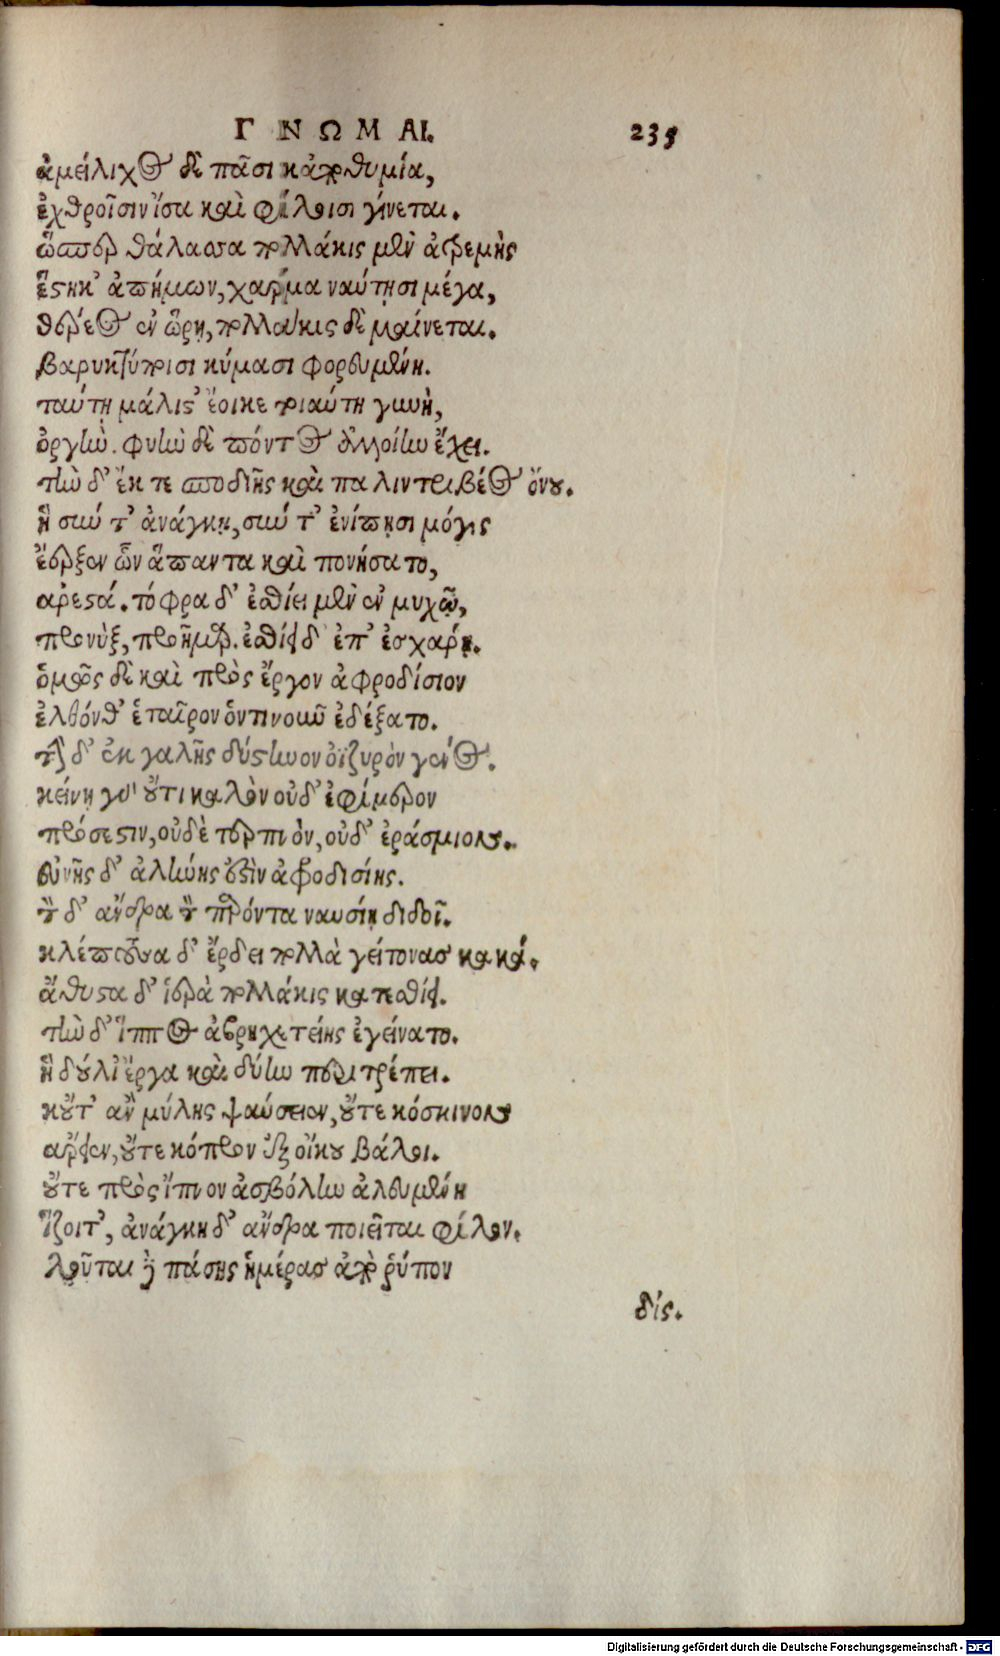 ΓΝΩΜΑΙ. 239
ἀμείλιχος δὲ πᾶσι κἀποθυμία,
ἐχθροῖσιν ἴσα καὶ φίλοισι γίνεται.
ὥσπερ θάλασσα πολλάκις μὲν ἀτρεμὴς
ἕστηκ' ἀπήμων, χάρμα ναύτησι μέγα,
θέρεος ἐν ὥρῃ, πολλάκις δὲ μαίνεται.
βαρυκτύποισι κύμασι φορουμένη.
ταύτῃ μάλιστ' ἔοικε τοιαύτη γυνὴ,
ὀργὴν. φυὴν δὲ πόντος ἀλλοίην ἔχει.
τὴν δ' ἔκ τε σποδιῆς καὶ παλιντριβέος ὄνου.
ἣ σύν τ' ἀνάγκῃ, σύν τ' ἐνίπῃσι μόγις
ἔερξεν ὧν ἅπαντα καὶ πονήσατο,
ἀρεστά. τόφρα δ' ἐσθίει μὲν ἐν μυχῷ,
προνὺξ, προῆμαρ. ἐσθίει δ' ἐπ' ἐσχάρῃ.
ὁμῶς δὲ καὶ πρὸς ἔργον ἀφροδίσιον
ἐλθόνθ' ἑταῖρον ὁντινοῦν ἐδέξατο.
τὴν δ' ἐκ γαλῆς δύστηνον ὀϊζυρὸν γένος.
κείνῃ γὰρ οὔτι καλὸν οὐδ' ἐφίμερον
πρόσεστιν, οὐδὲ τερπνὸν, οὐδ' ἐράσμιον.
εὐνῆς δ' ἀληνής ἐστιν ἀφροδισίης.
τὸν δ' ἄνδρα τὸν παρόντα ναυσίῃ διδοῖ.
κλέπτουσα δ' ἔρδει πολλὰ γείτονας κακά.
ἄθυστα δ' ἱερὰ πολλάκις κατεσθίει.
τὴν δ' ἵππος ἁβρὴ χετείης ἐγείνατο.
ἣ δούλι' ἔργα καὶ δύην περιτρέπει.
κοὔτ' ἂν μύλης ψαύσειεν, οὔτε κόσκινον
ἄρειεν, οὔτε κόπρον ἐξ οἴκου βάλοι.
οὔτε πρὸς ἴπνον ἀσβόλην ἀλευμένη
ἵζοιτ', ἀνάγκῃ δ' ἄνδρα ποιεῖται φίλον.
λοῦται δὲ πάσης ἡμέρας ἄπο ῥύπον
δίς.
Digitalisierung gefördert durch die Deutsche Forschungsgemeinschaft - DFG